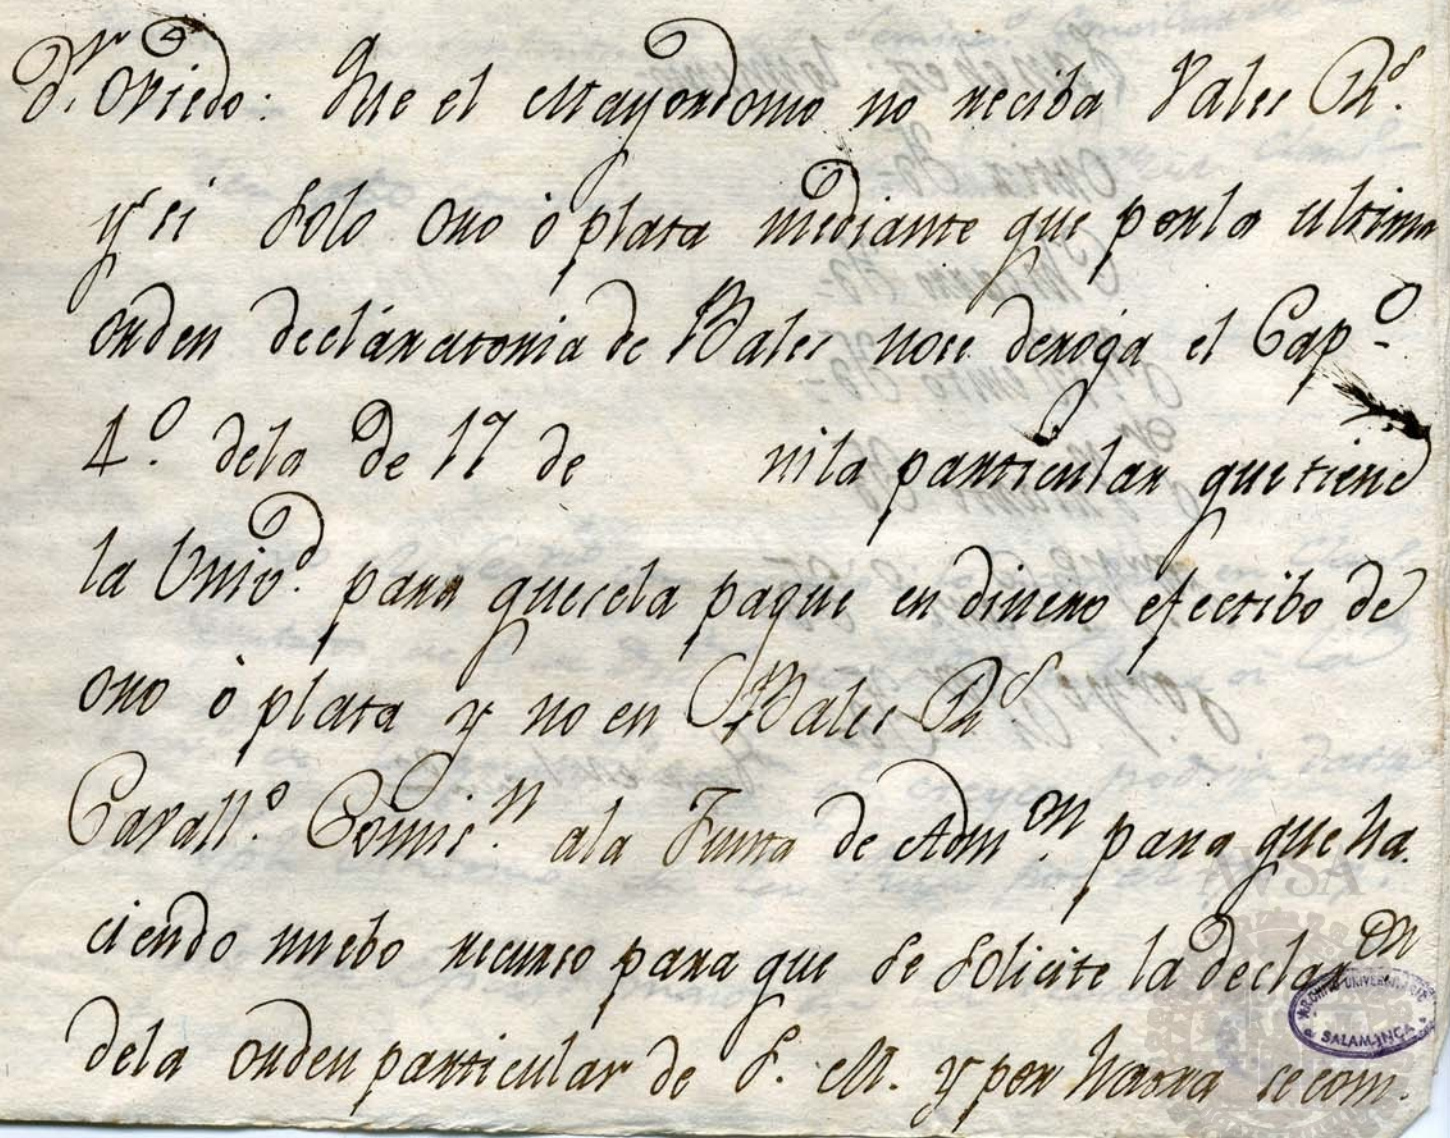 Dr. Oviedo: Que el Mayordomo no reciba Vales Rs.
y si solo oro ò plata mediante que porla ultima
orden declaratoria de Bales nose deroga el Capo.
4o. dela de 17 de nila particular que tiene
la Univd. para quesela pague en dinero efectibo de
oro ò plata y no en Bales Rs.
Cavallo. Comisn. ala Junta de Admon. para que ha-
ciendo nuebo recurso para que se solicite la declaron
dela orden particular de S. M. y por se com-
ARCHIVO UNIVERSITARIO
SALAMANCA
AVSA